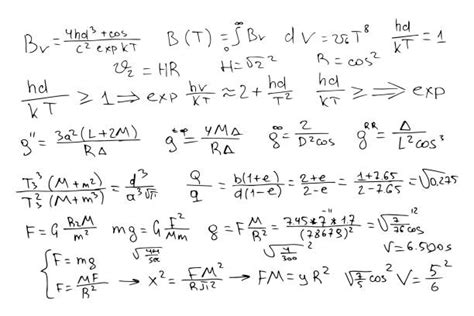 Bν = 4hd³ + cos / c² exp kT   B(T) = ∫₀^∞ Bν   dV = v₆T⁸   hd / kT = 1
ϑ₂ = HR   H = √2²   R = cos²
hd / kT ≥ 1 ⟹ exp hν / kT ≈ 2 + hd / T²   hd / kT ≥ ⟹ exp
g'' = 3a²(L+2M) / RΔ   g = 4MΔ / RΔ   g^∞ = 2 / D²cos   g^RR = Δ / L²cos³
T₃³(M+m²) / T₂²(M+m³) = d³ / a³√π   Q / q = b(1+e) / d(1-e) = 2+e / 2-e = 1+7.65 / 2-7.65 = √0,275
F = G R₂M / m²   mg = G F² / Mm   g = F M / R² = 7.45*7*1.7 / (78678)² = √7 / 76 cos
F = mg   √4M / sec   √4 / 300   V = 6.500s
F = MF / R² → x² = FM² / RJi² → FM = yR²   √7/5 cos² V = 5² / 6